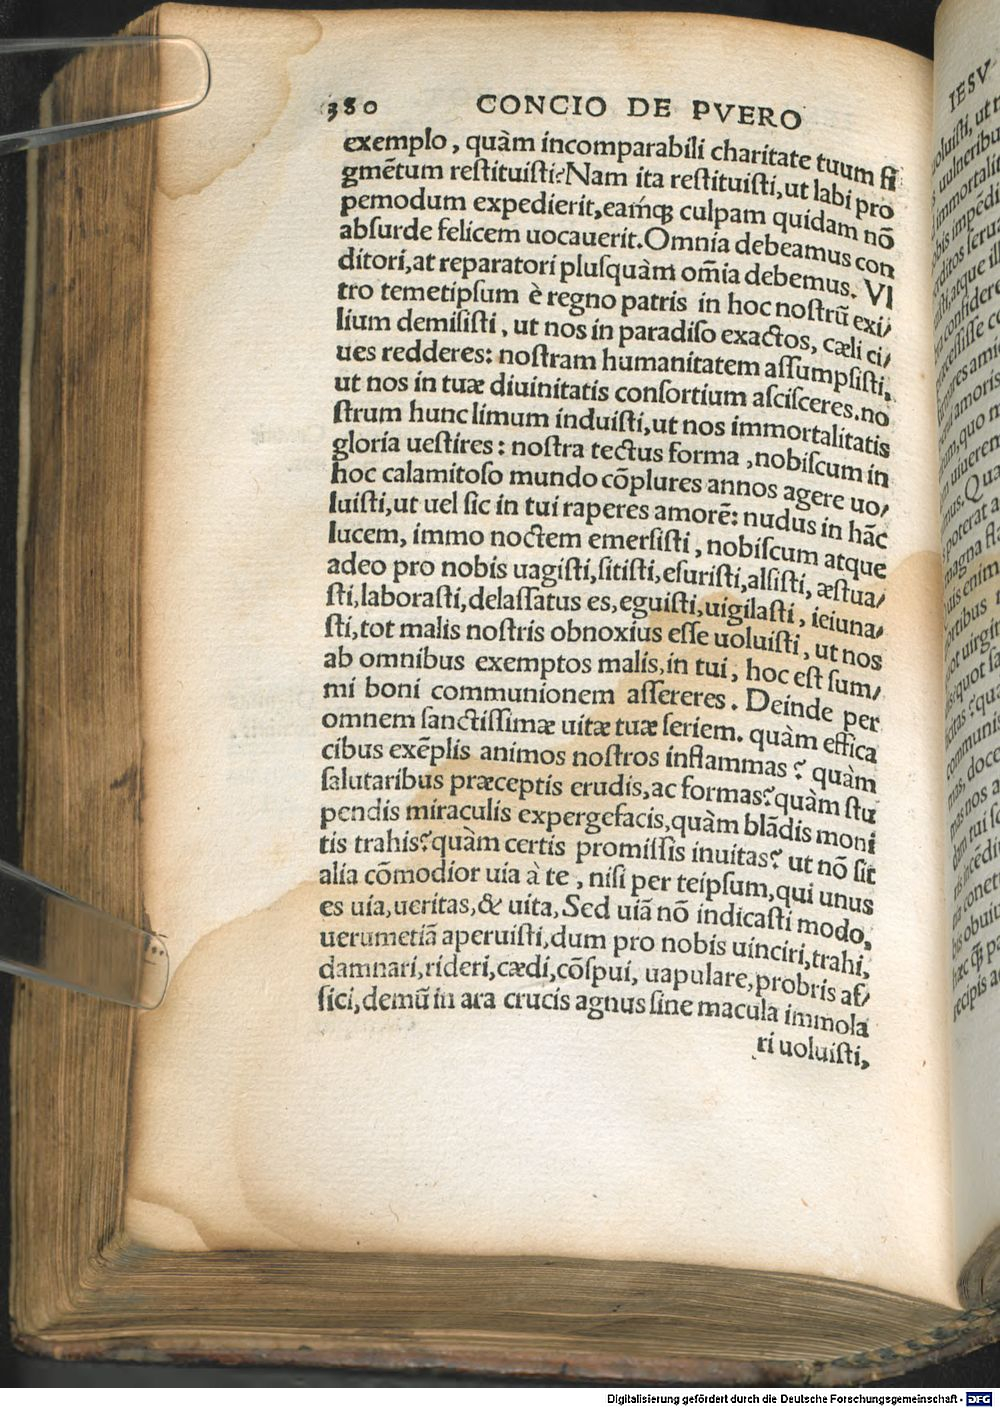 380 CONCIO DE PVERO
exemplo, quàm incomparabili charitate tuum fi
gmētum reſtituiſti? Nam ita reſtituiſti, ut labi pro
pemodum expedierit, eamꝗ culpam quidam nō
abſurde felicem uocauerit. Omnia debeamus con
ditori, at reparatori pluſquàm om̄ia debemus. Vl
tro temetipſum è regno patris in hoc noſtrū exi/
lium demiſiſti, ut nos in paradiſo exactos, cæli ci/
ues redderes: noſtram humanitatem aſſumpſiſti,
ut nos in tuæ diuinitatis conſortium aſciſceres. no
ſtrum hunc limum induiſti, ut nos immortalitatis
gloria ueſtires: noſtra tectus forma, nobiſcum in
hoc calamitoſo mundo cōplures annos agere uo/
luiſti, ut uel ſic in tui raperes amorē: nudus in hāc
lucem, immo noctem emerſiſti, nobiſcum atque
adeo pro nobis uagiſti, ſitiſti, eſuriſti, alſiſti, æſtua/
ſti, laboraſti, delaſſatus es, eguiſti, uigilaſti, ieiuna/
ſti, tot malis noſtris obnoxius eſſe uoluiſti, ut nos
ab omnibus exemptos malis, in tui, hoc eſt ſum/
mi boni communionem aſſereres. Deinde per
omnem ſanctiſſimæ uitæ tuæ ſeriem. quàm effica
cibus exēplis animos noſtros inflammas? quàm
ſalutaribus præceptis erudis, ac formas? quàm ſtu
pendis miraculis expergefacis, quàm blādis moni
tis trahis? quàm certis promiſſis inuitas? ut nō ſit
alia cōmodior uia à te, niſi per teipſum, qui unus
es uia, ueritas, & uita, Sed uiā nō indicaſti modo,
uerumetiā aperuiſti, dum pro nobis uinciri, trahi,
damnari, rideri, cædi, cōſpui, uapulare, probris af/
fici, demū in ara crucis agnus ſine macula immola
ri uoluiſti,
IESV
Digitalisierung gefördert durch die Deutsche Forschungsgemeinschaft - DFG